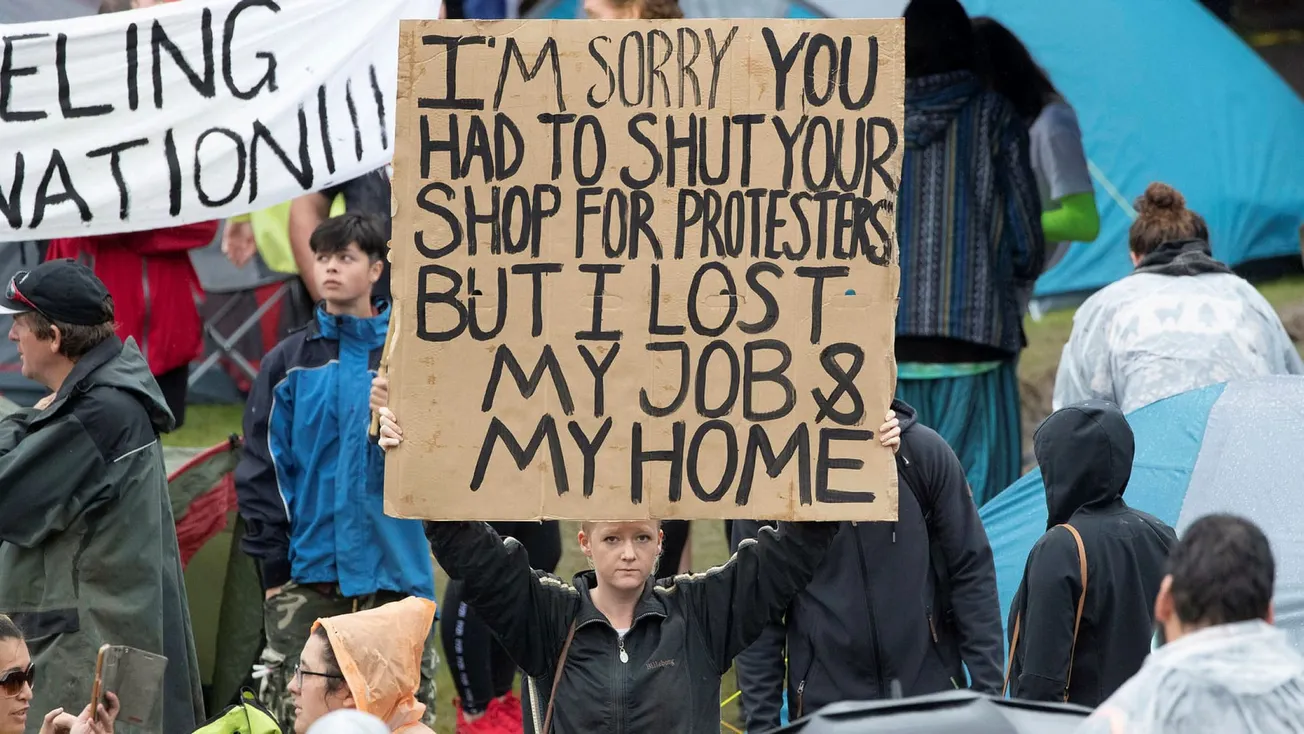 ELING
NATION!!!!
I'M SORRY YOU
HAD TO SHUT YOUR
SHOP FOR PROTESTERS
BUT I LOST
MY JOB &
MY HOME
Billabong